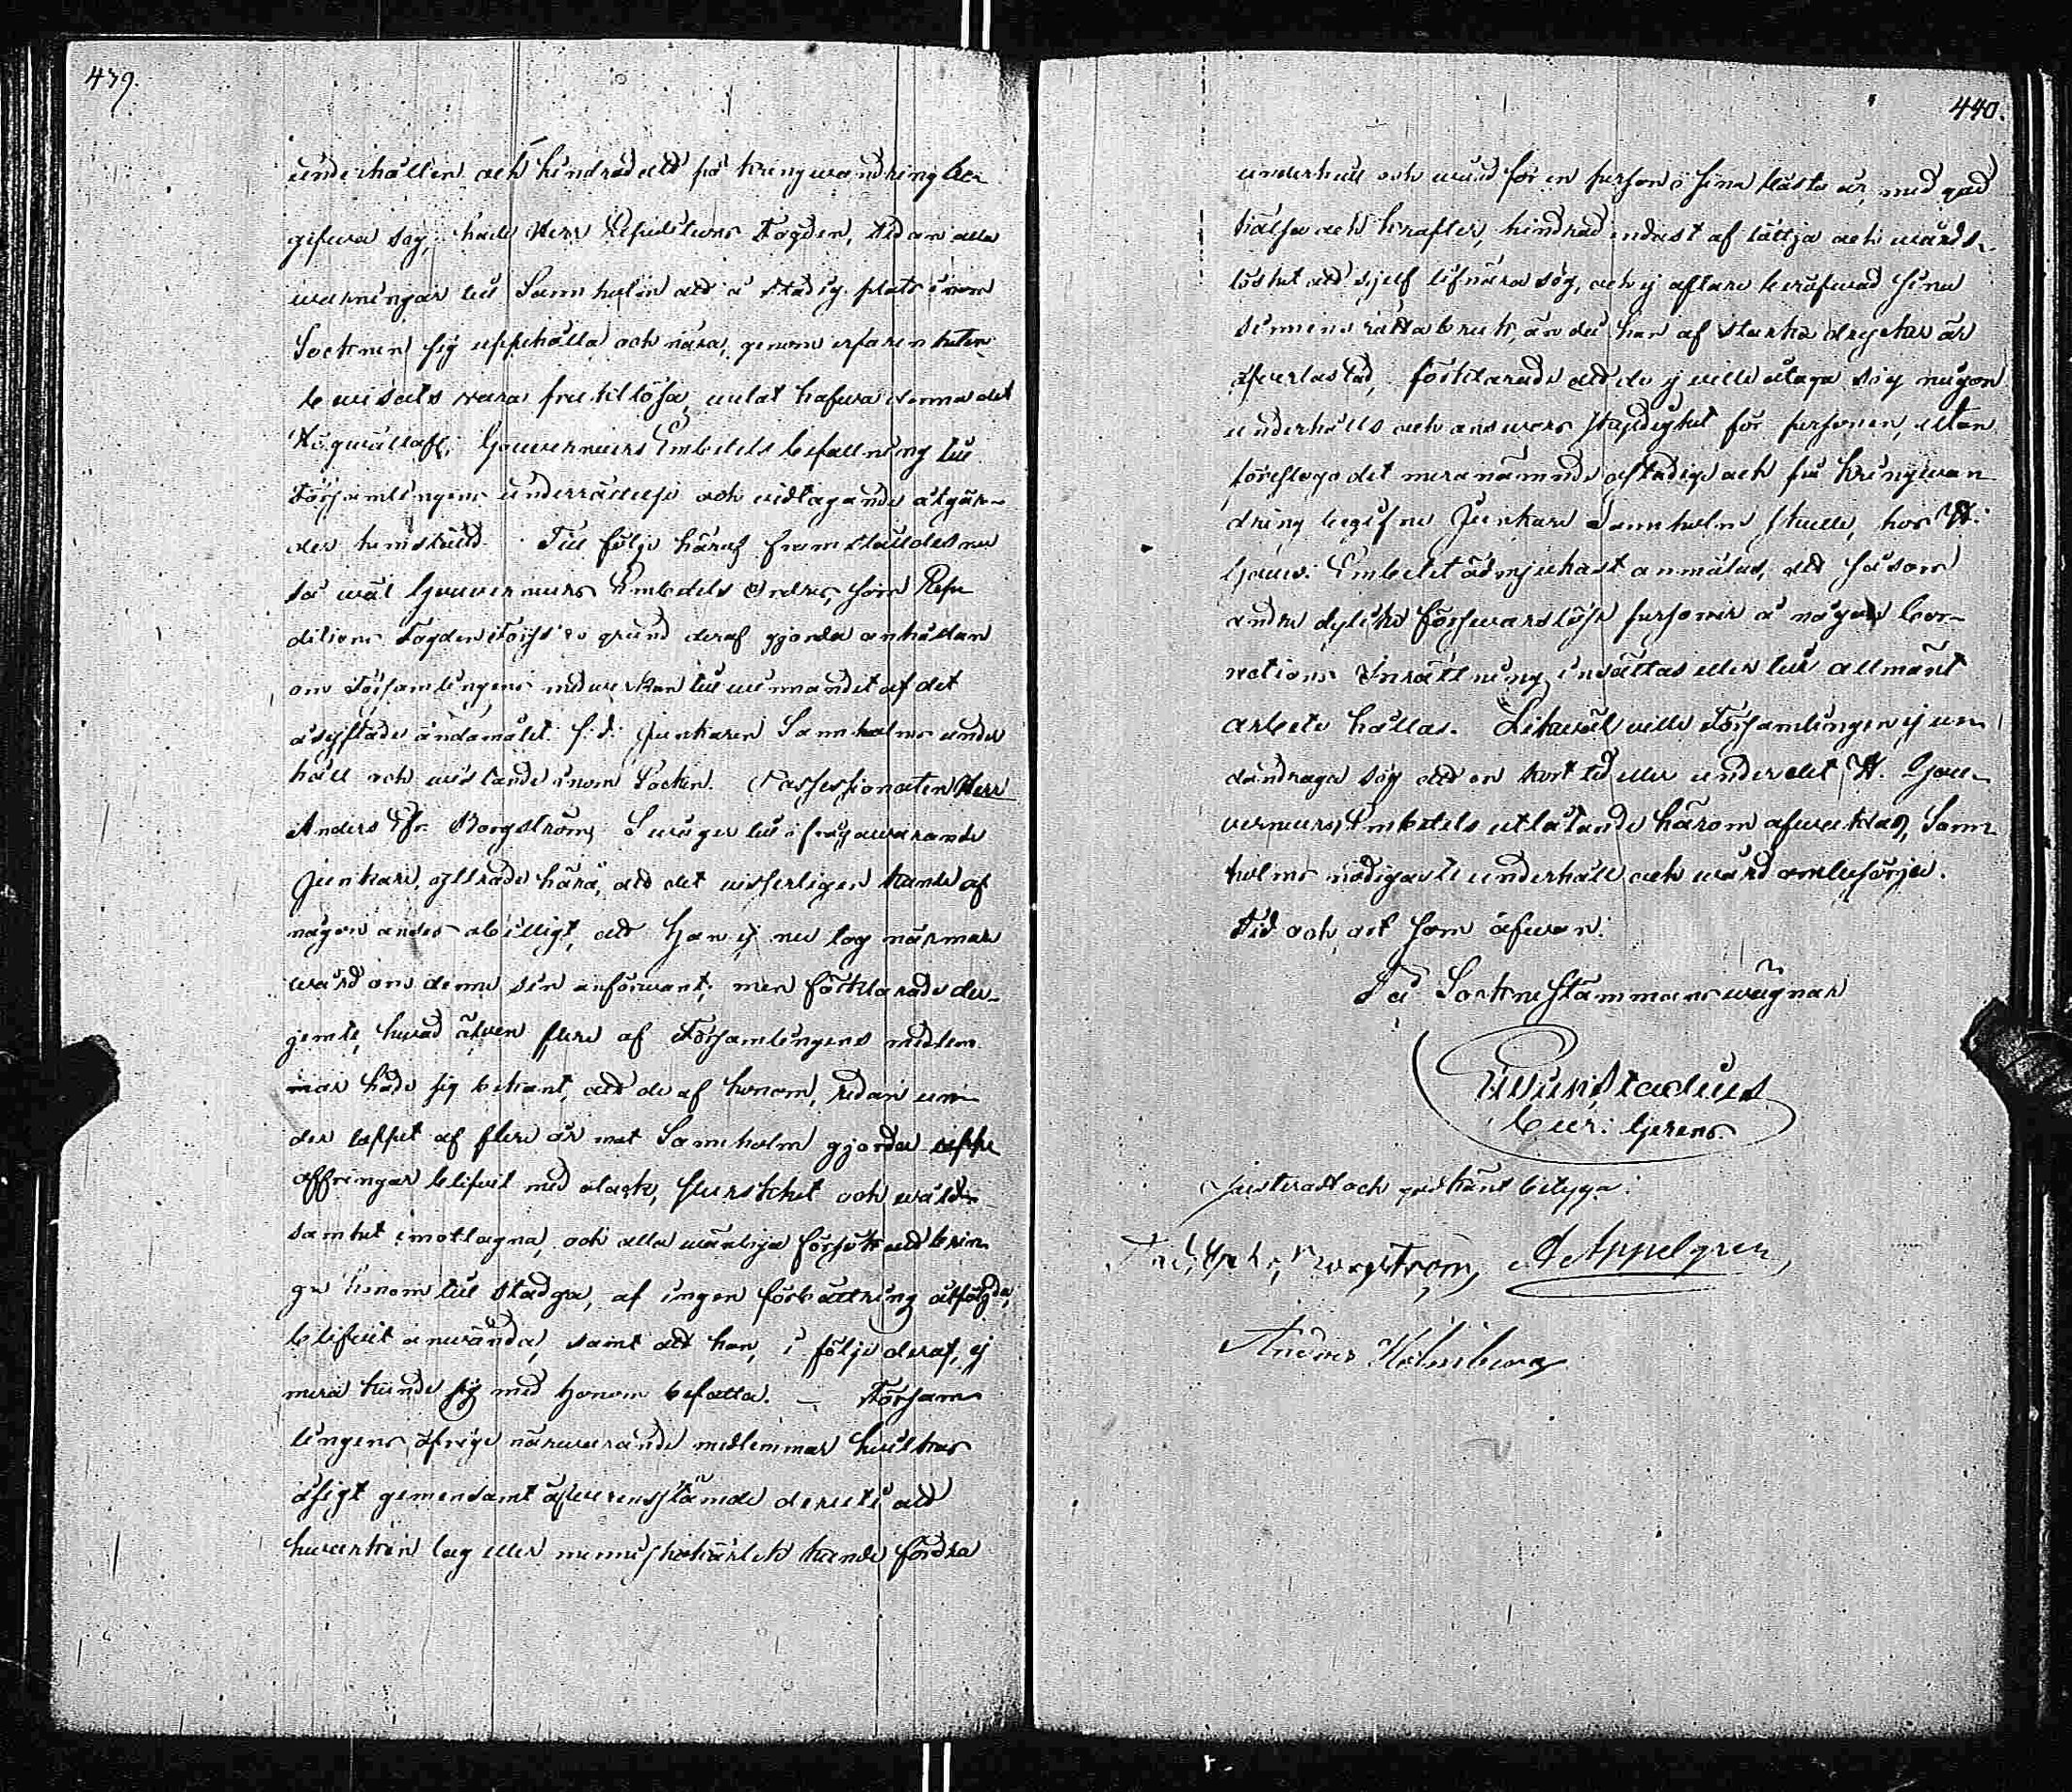 439.
underhållen och hindrad att på kringwandring be-
gifwa sig; hade Herr Expeditions Fogden, sedan alla
warningar till Sannholm att å stadig plats inom
Socknen sig uppehålla och nära, genom erfarenheten
bewisats wara fruktlösa, welat hafwa denna det
Högwällofl. Gouverneurs Embetets befallning till
Församlingens underrättelse och widtagande åtgär-
der hemställd. Till följe häraf framställdes nu
så wäl Gouverneurs Embetets Ordres, som Expe
ditions Fogden Forss's på grund deraf gjorda anhållan
om Församlingens medwerkan till winnandet af det
åsyftade ändamålet: f. d. Junkaren Sannholms under
håll och wistande inom Socken. Possessionaten Herr
Anders Fr. Borgström, Swåger till ifrågawarande
Junkare, yttrade härå, att det wisserligen kunde af
någon anses obilligt, att Han ej nu tog närmare
wård om denne sin anförwant; men förklarade der-
jemte, hwad äfwen flere af Församlingens medlem-
mar hade sig bekant, att de af honom, redan un-
der loppet af flere år mot Sannholm gjorda uppo
offringar blifwit med otack, flurskhet och wålds-
samhet emottagna, och alla wänliga försök att brin-
ga honom till stadga, af ingen förbättring åtföljda,
blifwit använda, samt att han, i följe deraf, ej
mera kunde sig med Honom befatta. – Försam-
lingens öfrige närwarande medlemmar hwilkas
åsigt gemensamt öfwerensstämde deruti att
hwarken lag eller menniskokärlek kunde fordra
440.
underhåll och wård för en person i sina bästa år, med god
hälsa och krafter, hindrad endast af lättja och wårds-
löshet att sjelf lifnära sig, och ej oftare beröfwad sina
sinnens rätta bruk, än då han af starka drycker är
öfwerlastad, förklarade att de ej wille åtaga sig någon
underhålls och answars skyldighet för personen, utan
föreslogo det meranämnde ostadige och på kringwan-
dring begifne Junkare Sannholm skulle, hos H.
Gouv. Embetet ödmjukast anmälas, att såsom
andra dylika förswarslösa personer å någon Cor-
rections Inrättning insättas eller till allmänt
arbete hållas. Likwäl wille Församlingen ej un-
dandraga sig att en kort tid eller under det H. Gou-
verneurs Embetets utlåtande härom afwaktas, Sann-
holms nödigaste underhåll och wård ombesörja.
Tid och ort som ofwan.
På Sockne stämmans wägnar
Cur: Gerens.
Justeradt och godkänt betyga:
Borgström, A Appelgren,
Anders Holmberg